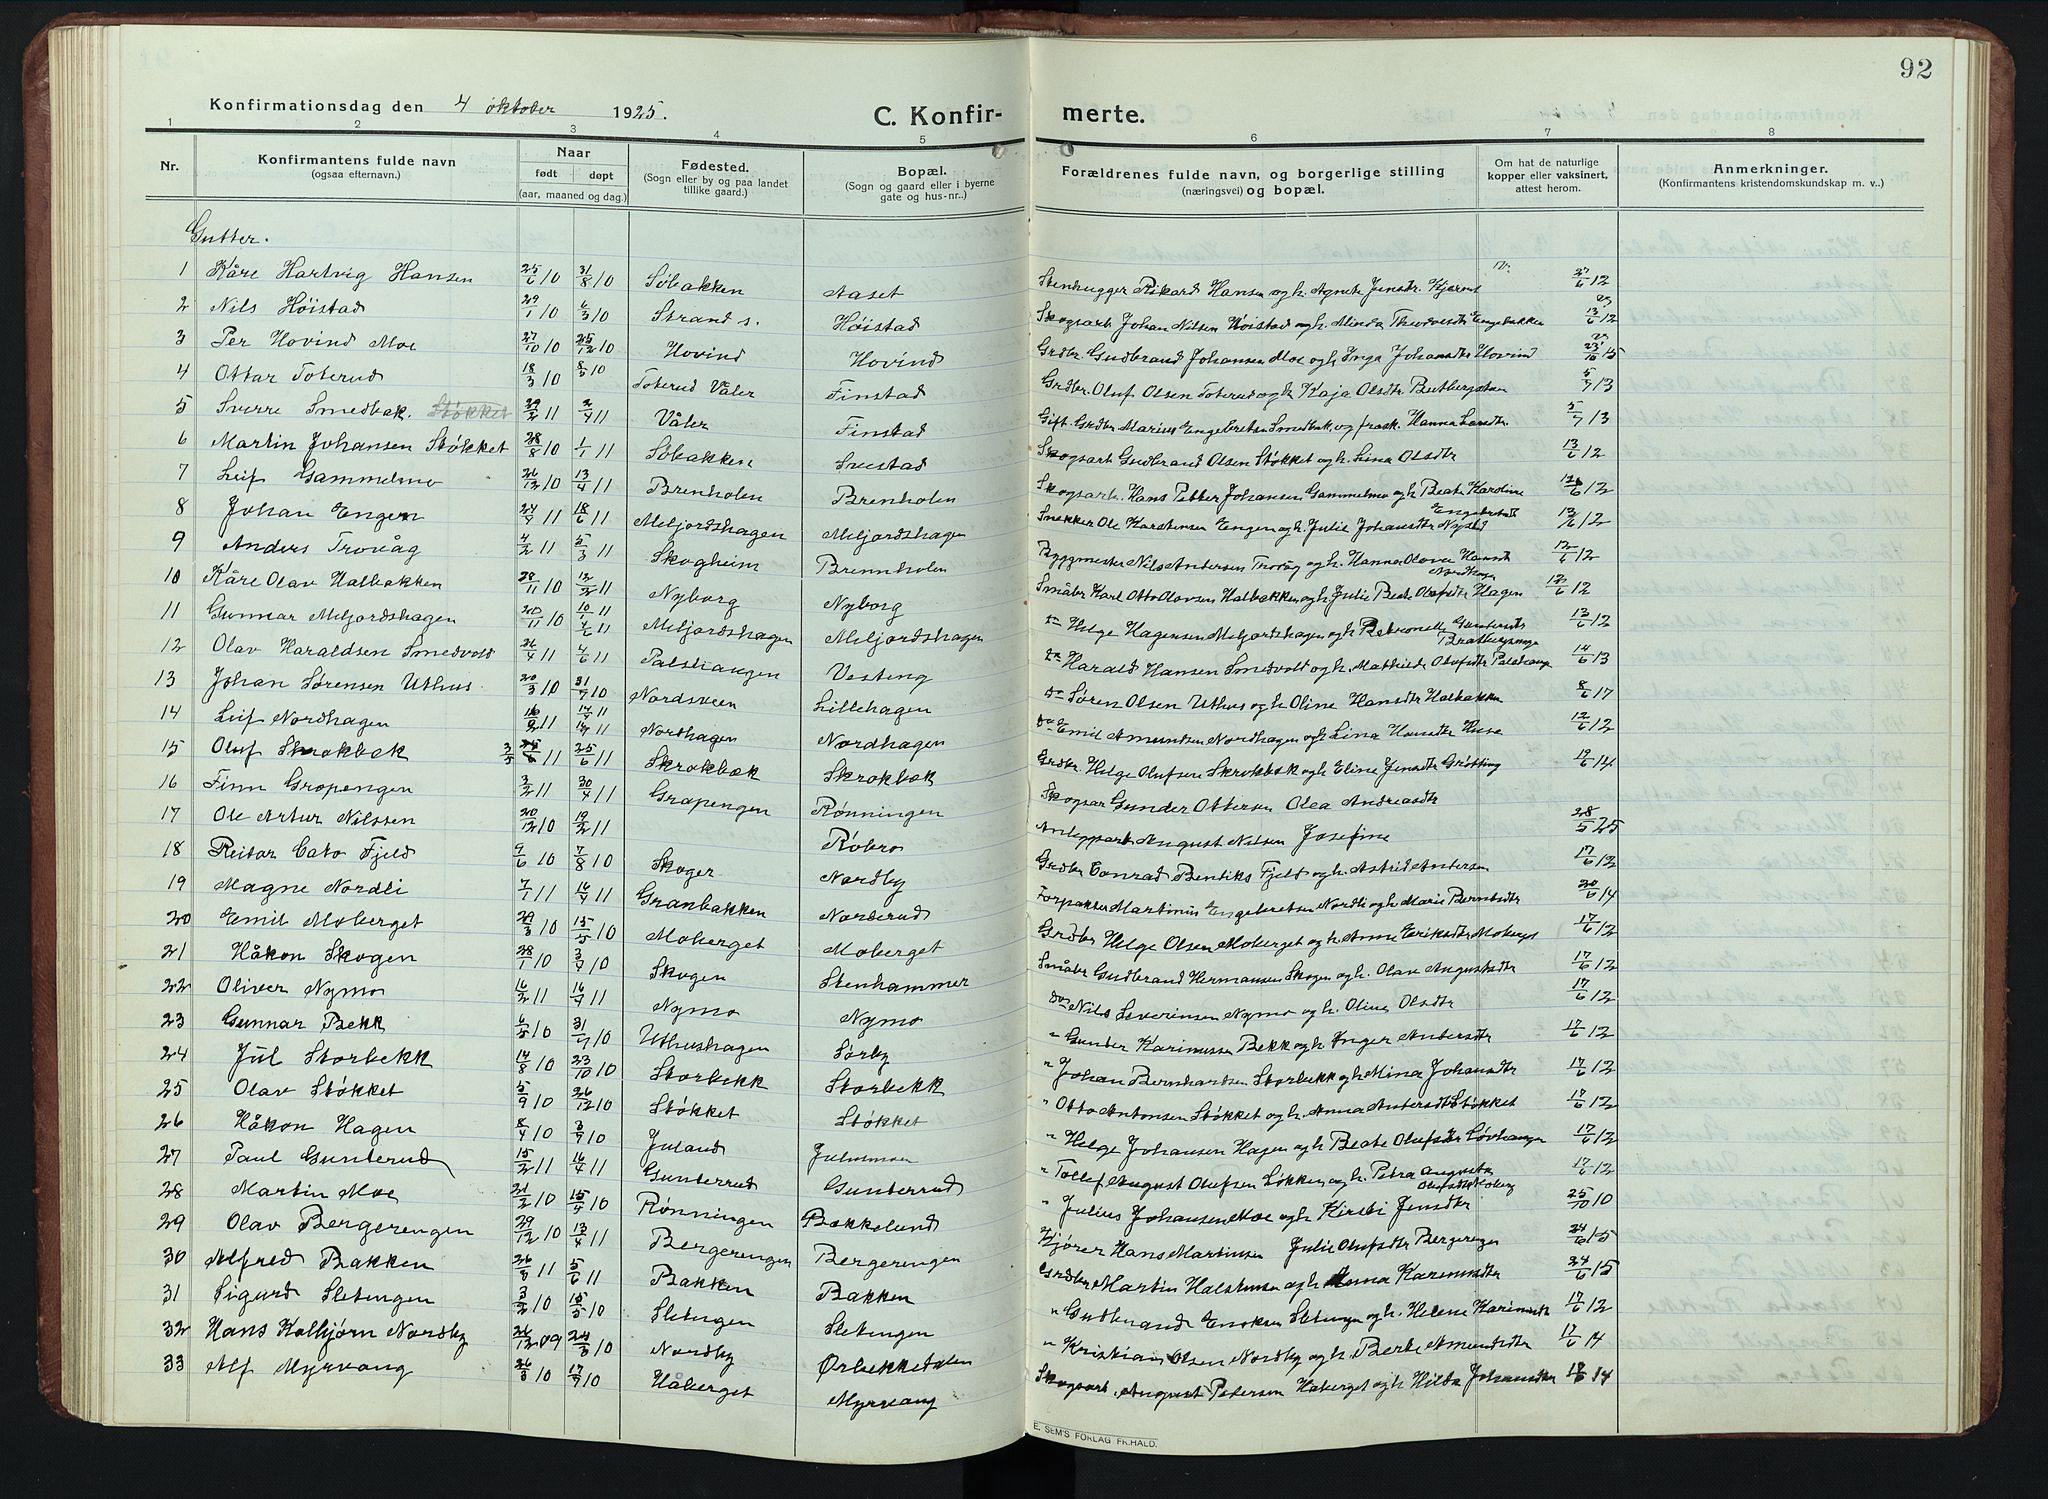 92
Konfirmationsdag den 4 oktober 1925.
C. Konfir-
merte.
1 2 3 4 5 6 7 8
Nr.
Konfirmantens fulde navn
(ogsaa efternavn.)
Naar
født døpt
(aar, maaned og dag.)
Fødested.
(Sogn eller by og paa landet
tillike gaard.)
Bopæl.
(Sogn og gaard eller i byerne
gate og hus-nr..)
Forældrenes fulde navn, og borgerlige stilling
(næringsvei) og bopæl.
Om hat de naturlige
kopper eller vaksinert,
attest herom.
Anmerkninger.
(Konfirmantens kristendomskundskap m. v..)
Gutter.
1 Kåre Hartvig Hansen 25/6 10 31/8 10 Søbakken Aaset Stenhugger Rikard Hansen og h. Agnete Jensdtr 27/6 12
2 Nils Høistad 29/1 10 6/3 10 Strand s. Høistad Skogsarb Johan Nilsen Høistad og h. Minda Engebakken 13/6 12
3 Per Hovind Moe 27/10 10 25/12 10 Hovind Hovind Grdbr. Gudbrand Johansen Moe og h. Inga Johansdtr Hovind 23/10 15
4 Ottar Toterud 18/3 10 8/5 10 Toterud Våler Finstad Grdbr. Oluf Olsen Toterud og h Kaja Olsdtr 5/7 13
5 Sverre Smedbak. Støkket 29/2 11 2/4 11 Våler Finstad Gift. Grdbr Marius Engebretsen Smedbak og frask. Hanna 5/7 13
6 Martin Johansen Støkket 28/8 10 1/1 11 Søbakken Svestad Skogsarb Gudbrand Olsen Støkket og h. Lina Olsdtr 13/6 12
7 Leif Gammelmo 26/12 10 13/4 11 Brenholen Brenholen Skogsarb. Hans Petter Johansen Gammelmo og h Beate Karoline Engebretsdtr 12
8 Johan Engen 24/4 11 18/6 11 Meljordshagen Meljordshagen Snekker Ole Karstensen Engen og h. Julie Johansdtr Nysted 13/6 12
9 Anders Trovåg 4/2 11 5/3 11 Skogheim Brennholen Byggmester Nils Andersen Trovåg og h. Hanna Olova Hansdtr Nordhagen 12/6 12
10 Kåre Olav Halbakken 28/11 10 12/2 11 Nyborg Nyborg Småbr Karl Otto Olavsen Halbakken og h Julie Beate Olafsdtr Hagen 12/6 12
11 Gunnar Meljordshagen 20/11 10 4/6 11 Meljordshagen Meljordshagen do Helge Hagensen Meljordshagen og h Petronelle Gundersdtr 13/6 12
12 Olav Haraldsen Smedvold 26/4 11 4/6 11 Palshaugen Vesteng do Harald Hansen Smedvold og h. Mathilde Olufsdtr Palshaugen 14/6 13
13 Johan Sørensen Uthus 20/3 10 31/7 10 Nordsveen Lillehagen do Søren Olsen Uthus og h Oline Hansdtr Halbakken 8/6 17
14 Leif Nordhagen 11 11 Nordhagen Nordhagen do Emil Amundsen Nordhagen og h Lina Hansdtr Huse 12/6 12
15 Oluf Skrokbæk 3/5 11 25/6 11 Skrokbæk Skrokbæk Grdbr. Helge Olufsen Skrokbæk og h Eline Jensdtr Grøtting 12/6 14
16 Finn Grøpengen 3/2 11 30/4 11 Grøpengen Rønningen Skogsar Gunder Ottersen Olea Andreasdtr
17 Ole Artur Nilssen 20/12 10 19/2 11 Röbro August Nilsen Josefine 28/5 25
18 Reitar Cato Fjeld 9/6 10 7/8 10 Skoger Nordby Grdbr Conrad Bendiks Fjeld og h. Astrid Andersen 17/6 12
19 Magne Nordli 7/1 11 16/4 11 Granbakken Norderud Forpakter Martinus Engebretsen Nordli og h Marie Berntsdtr 20/6 14
20 Emil Moberget 29/3 10 15/5 10 Moberget Moberget Grdbr Helge Olsen Moberget og h. Anne Eriksdtr Moberget 17/6 12
21 Håkon Skogen 28/1 10 3/4 10 Skogen Stenhammer Småbr Gudbrand Hermansen Skogen og h. Olav Augustsdtr 17/6 12
22 Oliver Nymo 16/2 11 16/4 11 Nymo Nymo do Nils Severinsen Nymo og h. Oline Olsdtr 17/6 12
23 Gunnar Bekk 6/5 10 31/7 10 Uthushagen Sørby " Gunder Karinussen Bekk og h. Inger Andersdtr 17/6 12
24 Jul Storbekk 14/8 10 23/10 10 Storbekk Storbekk " Johan Bernhardsen Storbekk og h Mina Johansdtr 17/6 12
25 Olav Støkket 5/9 10 26/12 10 Støkket Støkket " Otto Antonsen Støkket og h. Anna Andersdtr Støkket 17/6 12
26 Håkon Hagen 8/4 10 3/7 10 Juland Julsmoen " Helge Johansen Hagen og h Beate Olufsdtr Løvhaugen 17/6 12
27 Paul Gunderud 15/2 11 16/4 11 Gunderrud Gunderrud " Tollef August Olufsen Løkken og h. Petra Augusta 17/6 12
28 Martin Moe 21/2 10 15/4 10 Rønningen Bakkelund " Julius Johansen Moe og h Kirsti Jensdtr 25/10 10
29 Olav Bergerengen 29/12 10 13/4 11 Bergerengen Bergerengen Kjører Hans Martinsen Julie Olufsdtr Bergerengen 24/6 15
30 Alfred Bakken 26/3 11 5/6 11 Bakken Bakken Grdbr Martin Halstensen og h Anna Karinusdtr 24/6 15
31 Sigurd Sletengen 3/2 10 15/5 10 Sletengen Sletengen " Gudbrand Enoksen Sletengen og h. Helene Karinusdtr 17/6 12
32 Hans Kolbjørn Nordby 26/12 09 24/3 10 Nordby Ørbekkedalen " Kristian Olsen Nordby og h. Berte Amundsdtr 17/6 14
33 Alf Myrvang 26/3 10 17/7 10 Håberget Myrvang Skogsarb. August Pedersen Haberget og h Hilda Johansdtr 18/6 14
E. SEM'S FORLAG FR.HALD.